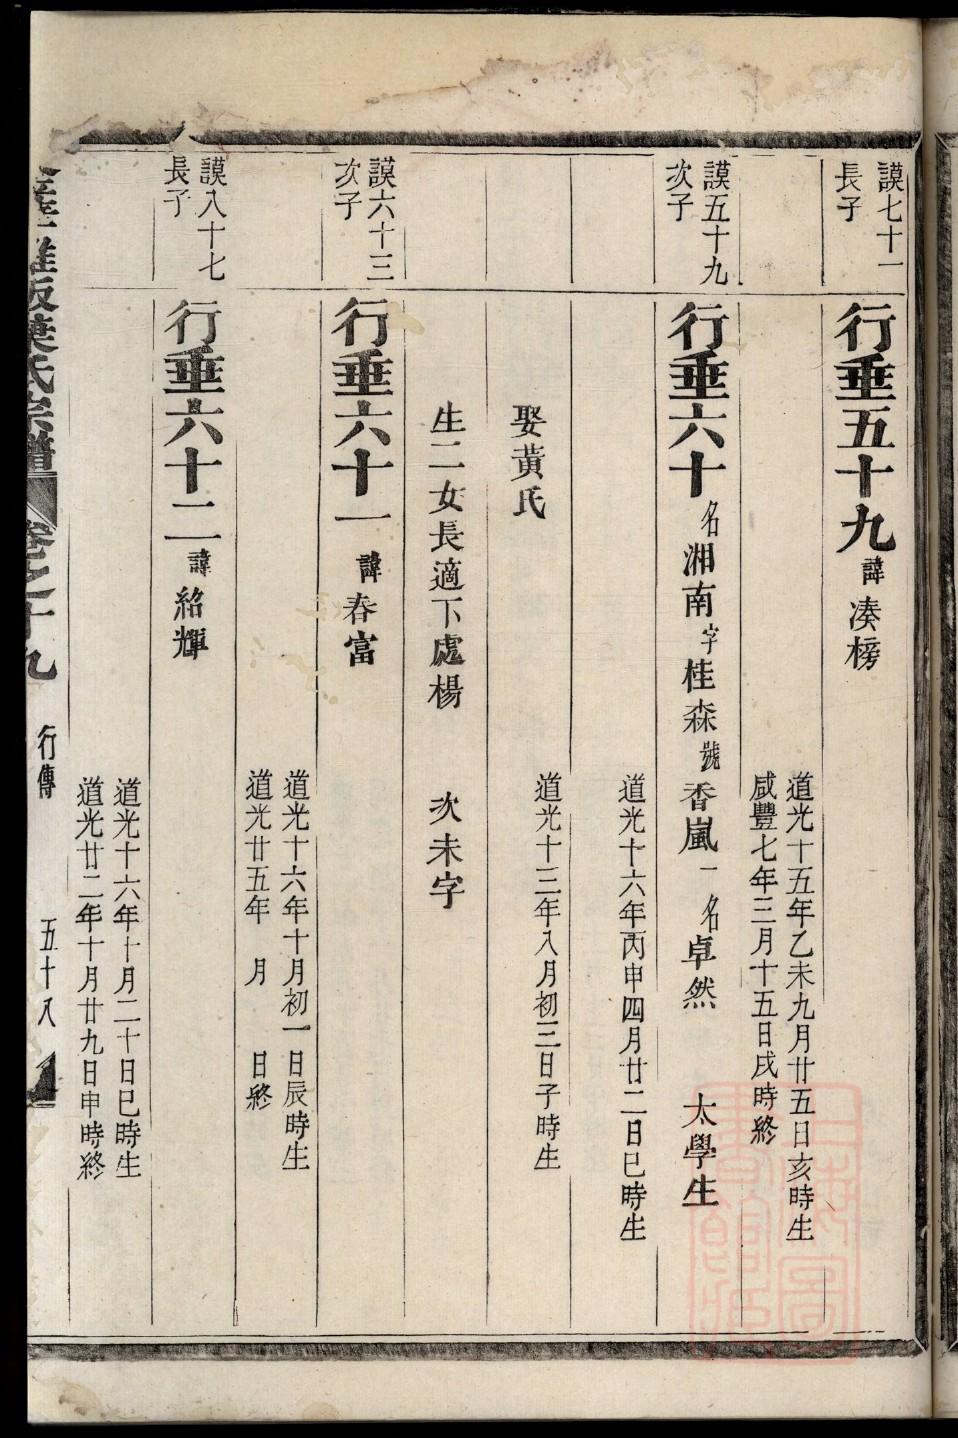 謨七十一
長子
行垂五十九 諱 湊榜
道光十五年乙未九月廿五日亥時生
咸豐七年三月十五日戌時終
謨五十九
次子
行垂六十 名 湘南 字 桂森 號 香嵐 一名 卓然 太學生
道光十六年丙申四月廿二日巳時生
娶黃氏
道光十三年八月初三日子時生
生二女長適下處楊 次未字
謨六十三
次子
行垂六十一 諱 春富
道光十六年十月初一日辰時生
道光廿五年 月 日終
謨八十七
長子
行垂六十二 諱 紹輝
道光十六年十月二十日巳時生
道光廿二年十月廿九日申時終
葉氏宗譜 卷之十九 行傳 五十八
上海圖書館藏